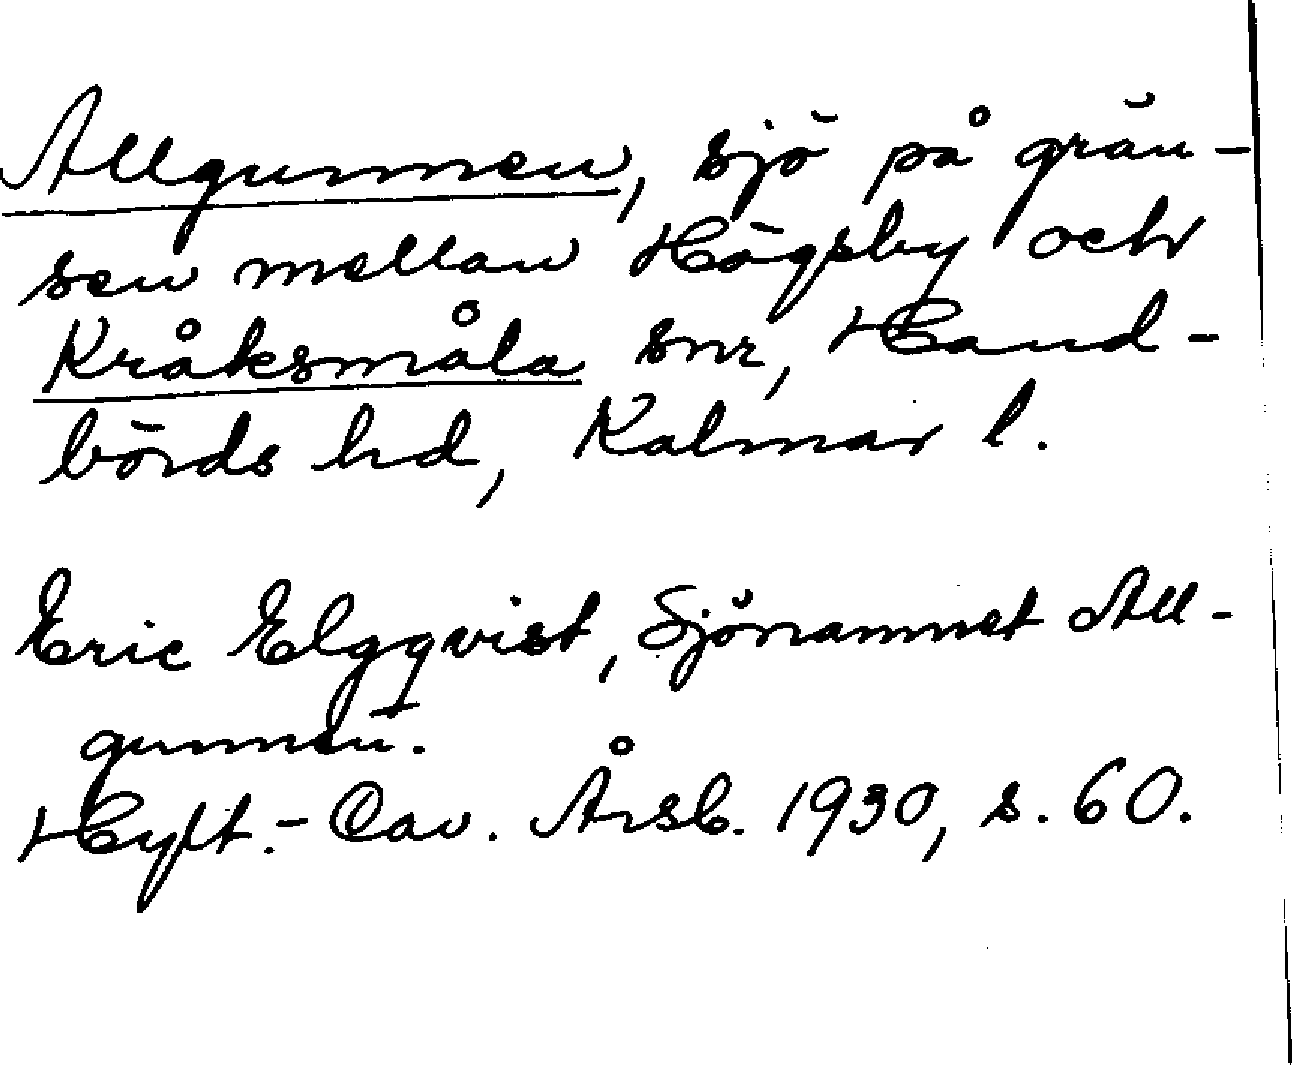 Allgunnen, sjö på grän-
sen mellan Högsby och
Kråksmåla snr, Hand-
börds hd, Kalmar l.
Eric Elgqvist, Sjönamnet All-
gunnen.
Hylt.-Cav. Årsb. 1930, s. 60.